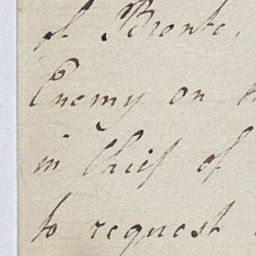 of Bronte,
Enemy on
in Chief of
to request